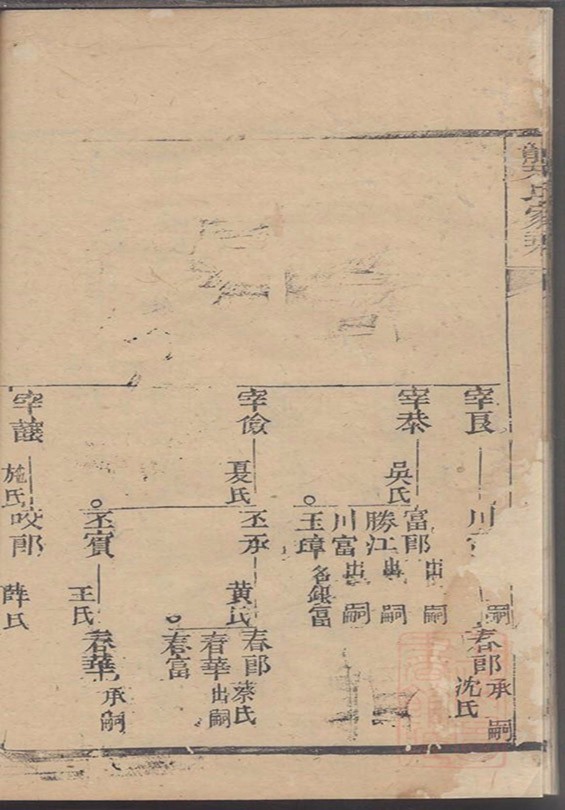 龔氏家乘
宰良
川
嗣
春郎
承嗣
沈氏
宰恭
吳氏
富郎
出嗣
勝江
出嗣
川富
出嗣
玉璋
名銀富
宰儉
夏氏
丕承
黃氏
春郎
蔡氏
春華
出嗣
春富
丕賓
王氏
春華
承嗣
宰讓
施氏
咬郎
薛氏